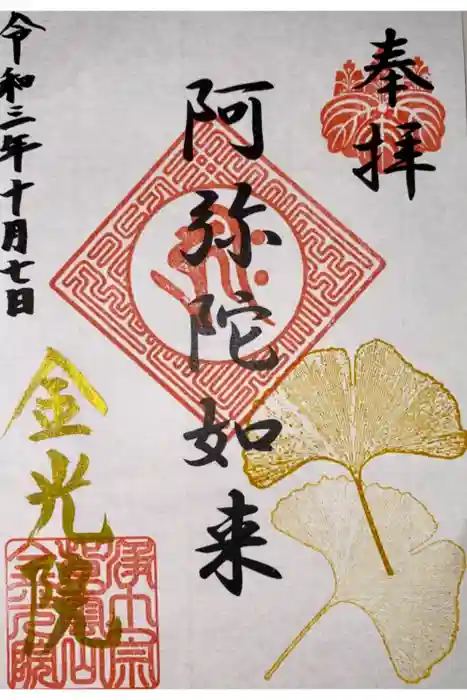 奉拝
阿弥陀如来
令和三年十月七日
金光院
浄土宗